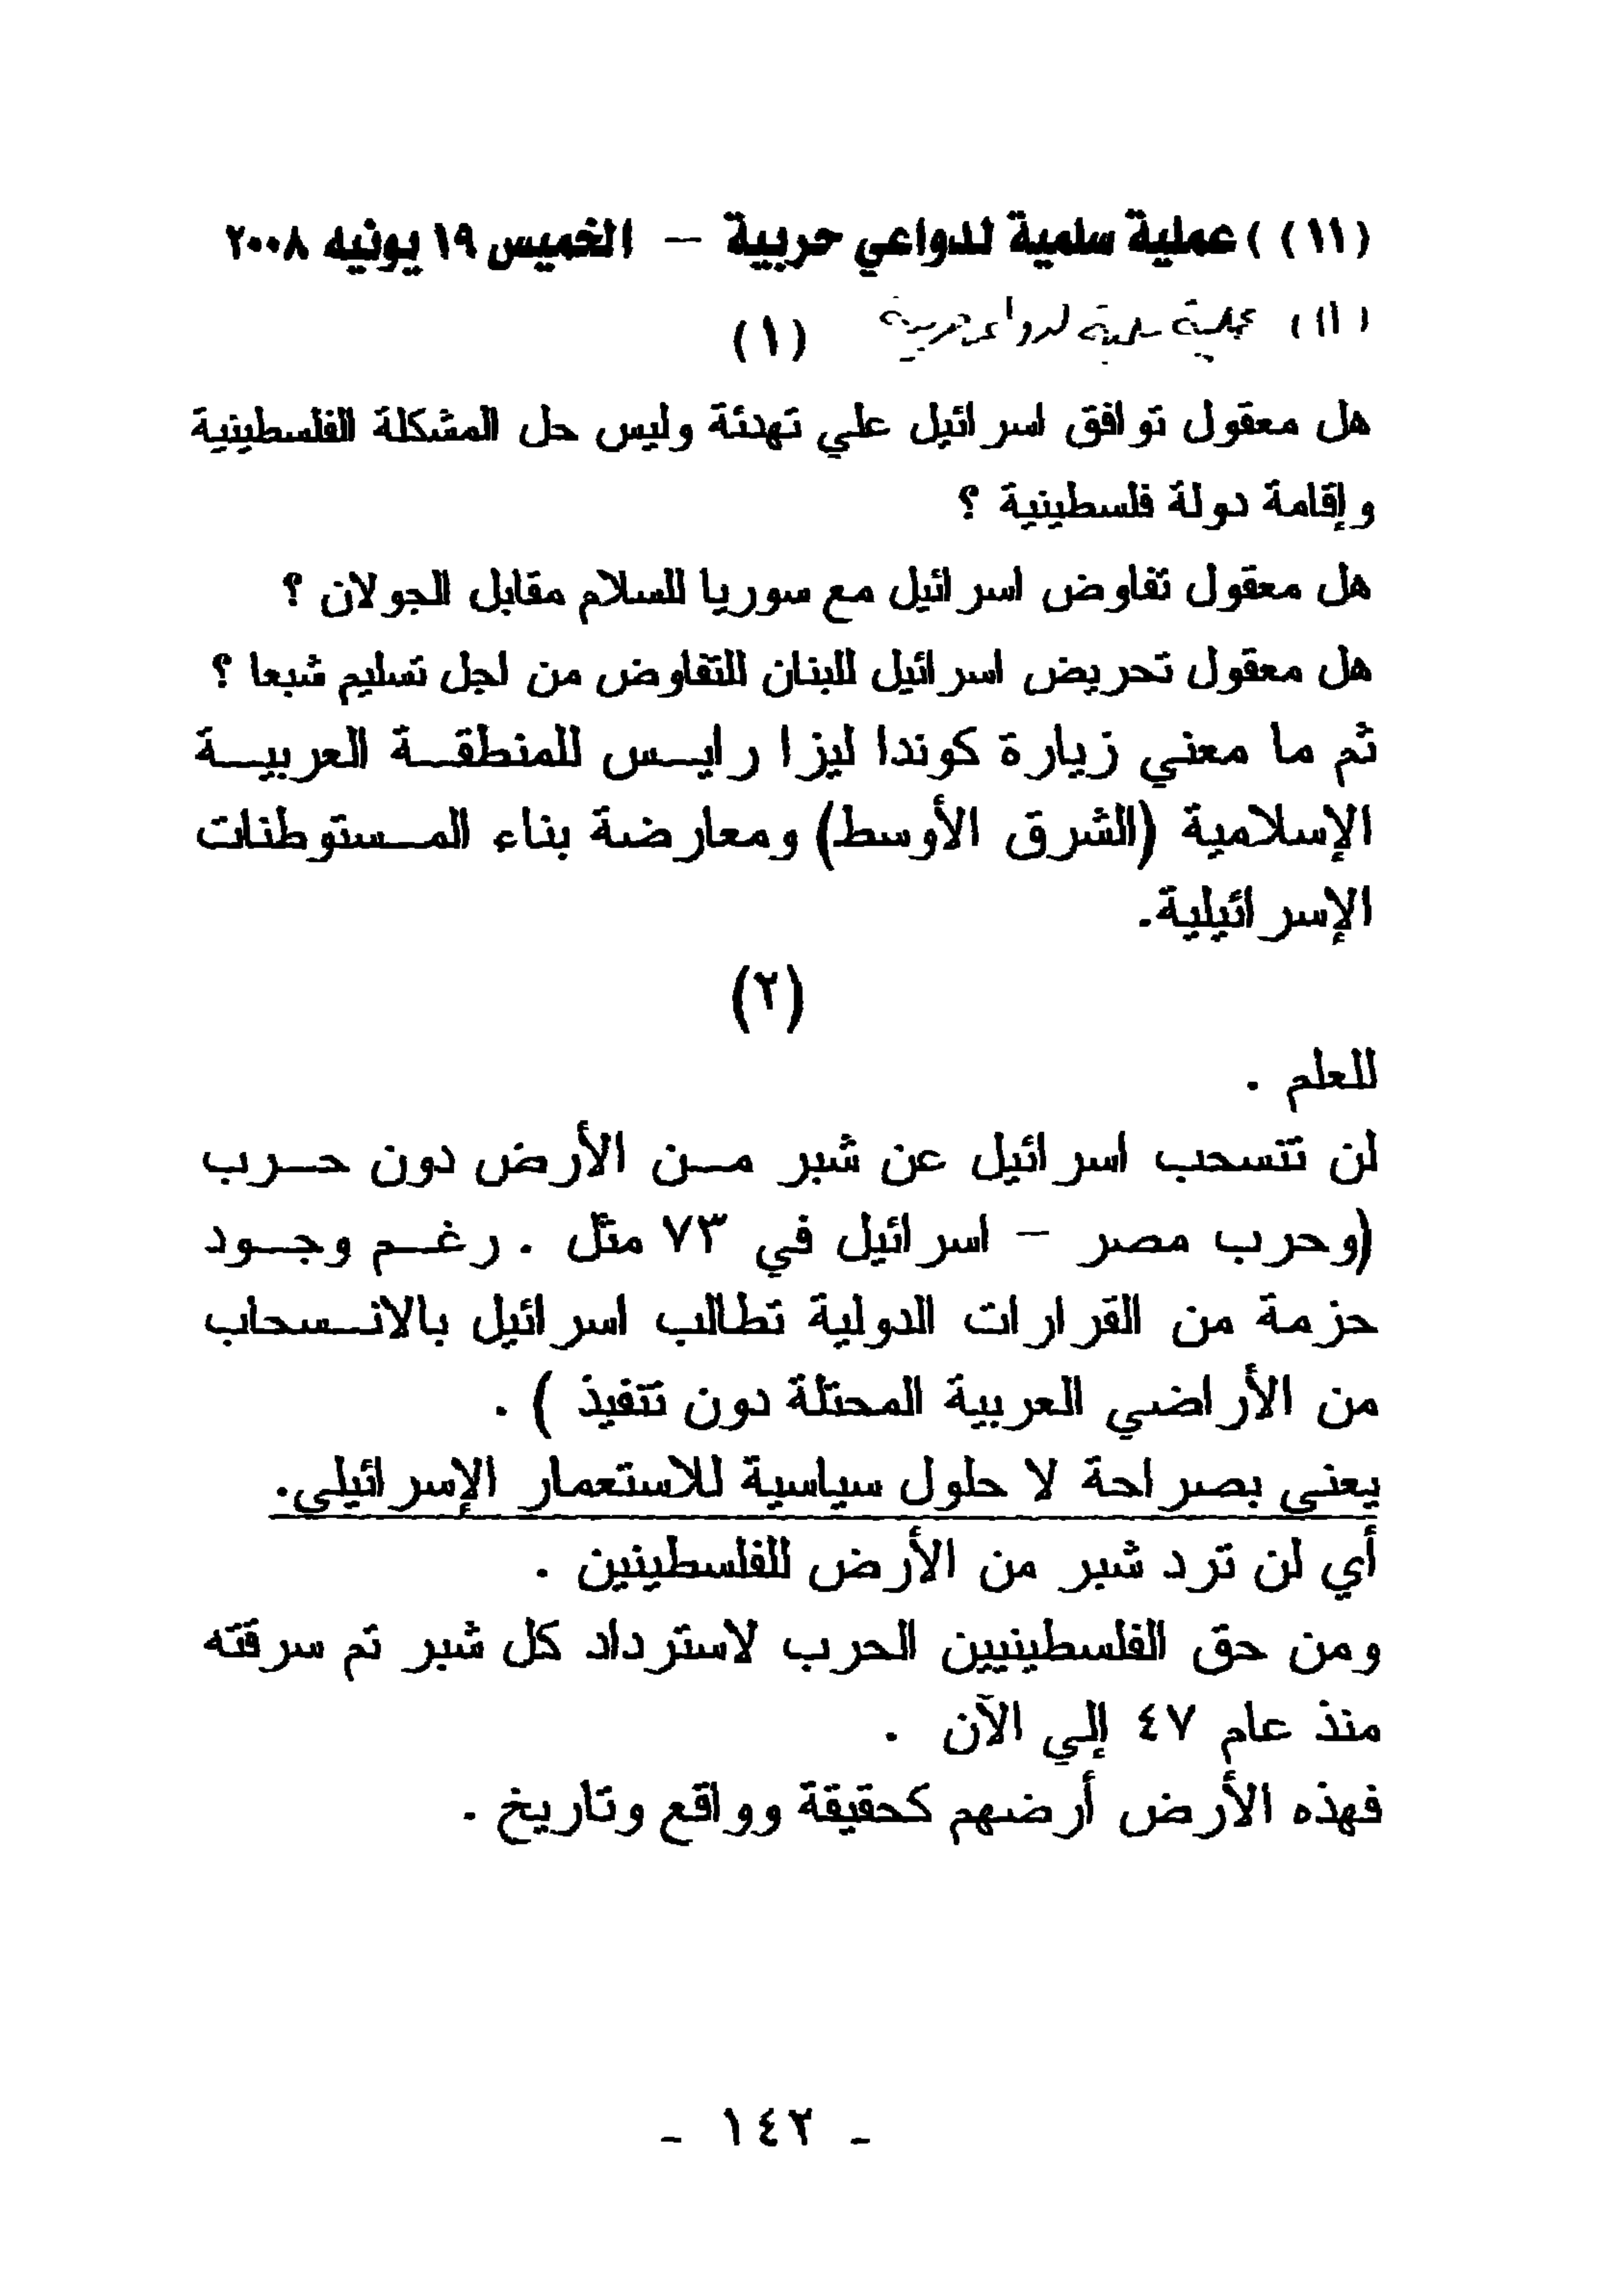 (١١) ( عملية سلمية لدواعي حربية – الخميس ١٩ يونيه ٢٠٠٨
(١١) عملية سلمية لدواعي حربية (١)
هل معقول توافق اسرائيل علي تهدئة وليس حل المشكلة الفلسطينية
وإقامة دولة فلسطينية ؟
هل معقول تفاوض اسرائيل مع سوريا للسلام مقابل الجولان ؟
هل معقول تحريض اسرائيل للبنان للتفاوض من اجل تسليم شبعا ؟
ثم ما معني زيارة كوندا ليزا رايس للمنطقة العربية
الإسلامية (الشرق الأوسط) ومعارضة بناء المستوطنات
الإسرائيلية.
(٢)
للعلم .
لن تتسحب اسرائيل عن شبر من الأرض دون حرب
(وحرب مصر – اسرائيل في ٧٣ مثل . رغم وجود
حزمة من القرارات الدولية تطالب اسرائيل بالانسحاب
من الأراضي العربية المحتلة دون تتفيذ ) .
يعني بصراحة لا حلول سياسية للاستعمار الإسرائيلي.
أي لن ترد شبر من الأرض للفلسطينين .
ومن حق الفلسطينيين الحرب لاسترداد كل شبر تم سرقته
منذ عام ٤٧ إلي الآن .
فهذه الأرض أرضهم كحقيقة وواقع وتاريخ .
- ١٤٢ -